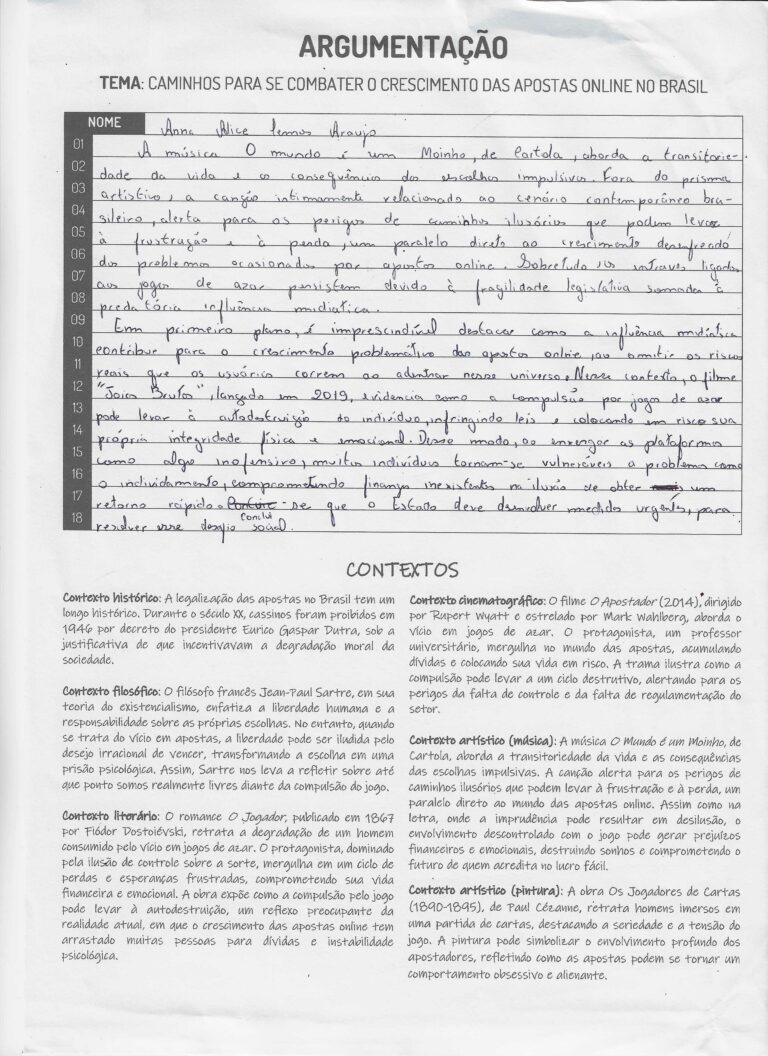 ARGUMENTAÇÃO
TEMA: CAMINHOS PARA SE COMBATER O CRESCIMENTO DAS APOSTAS ONLINE NO BRASIL
NOME Anna Alice Lemos Araujo
01 A música O mundo é um Moinho, de Cartola, aborda a transitorie-
02 dade da vida e as consequências das escolhas impulsivas. Fora do prisma
03 artístico, a canção intimamente relacionado ao cenário contemporâneo bra-
04 sileiro, alerta para os perigos de caminhos ilusórios que podem levar
05 à frustração e à perda, um paralelo direto ao crescimento desenfreado
06 dos problemas ocasionados por apostas online. Sobretudo, os entraves ligados
07 aos jogos de azar persistem devido à fragilidade legislativa somada à
08 predatória influência midiática.
09 Em primeiro plano, é imprescindível destacar como a influência midiática
10 contribue para o crescimento problemático das apostas online, ao omitir os riscos
11 reais que os usuários correm ao adentrar nesse universo. Nesse contexto, o filme
12 "Joias Brutas", lançado em 2019, evidencia como a compulsão por jogos de azar
13 pode levar à autodestruição do indivíduo, infringindo leis e colocando em risco sua
14 própria integridade física e emocional. Desse modo, ao enxergar as plataformas
15 como algo inofensivo, muitos indivíduos tornam-se vulneráveis a problemas como
16 o individamento, comprometendo finanças inexistentes na ilusão de obter um
17 retorno rápido. Conclui-se que o Estado deve desenvolver medidas urgentes, para
18 resolver esse desafio social.
CONTEXTOS
Contexto histórico: A legalização das apostas no Brasil tem um
longo histórico. Durante o século XX, cassinos foram proibidos em
1946 por decreto do presidente Eurico Gaspar Dutra, sob a
justificativa de que incentivavam a degradação moral da
sociedade.
Contexto filosófico: O filósofo francês Jean-Paul Sartre, em sua
teoria do existencialismo, enfatiza a liberdade humana e a
responsabilidade sobre as próprias escolhas. No entanto, quando
se trata do vício em apostas, a liberdade pode ser iludida pelo
desejo irracional de vencer, transformando a escolha em uma
prisão psicológica. Assim, Sartre nos leva a refletir sobre até
que ponto somos realmente livres diante da compulsão do jogo.
Contexto literário: O romance O Jogador, publicado em 1867
por Fiódor Dostoiévski, retrata a degradação de um homem
consumido pelo vício em jogos de azar. O protagonista, dominado
pela ilusão de controle sobre a sorte, mergulha em um ciclo de
perdas e esperanças frustradas, comprometendo sua vida
financeira e emocional. A obra expõe como a compulsão pelo jogo
pode levar à autodestruição, um reflexo preocupante da
realidade atual, em que o crescimento das apostas online tem
arrastado muitas pessoas para dívidas e instabilidade
psicológica.
Contexto cinematográfico: O filme O Apostador (2014), dirigido
por Rupert Wyatt e estrelado por Mark Wahlberg, aborda o
vício em jogos de azar. O protagonista, um professor
universitário, mergulha no mundo das apostas, acumulando
dívidas e colocando sua vida em risco. A trama ilustra como a
compulsão pode levar a um ciclo destrutivo, alertando para os
perigos da falta de controle e da falta de regulamentação do
setor.
Contexto artístico (música): A música O Mundo é um Moinho, de
Cartola, aborda a transitoriedade da vida e as consequências
das escolhas impulsivas. A canção alerta para os perigos de
caminhos ilusórios que podem levar à frustração e à perda, um
paralelo direto ao mundo das apostas online. Assim como na
letra, onde a imprudência pode resultar em desilusão, o
envolvimento descontrolado com o jogo pode gerar prejuízos
financeiros e emocionais, destruindo sonhos e comprometendo o
futuro de quem acredita no lucro fácil.
Contexto artístico (pintura): A obra Os Jogadores de Cartas
(1890-1895), de Paul Cézanne, retrata homens imersos em
uma partida de cartas, destacando a seriedade e a tensão do
jogo. A pintura pode simbolizar o envolvimento profundo dos
apostadores, refletindo como as apostas podem se tornar um
comportamento obsessivo e alienante.